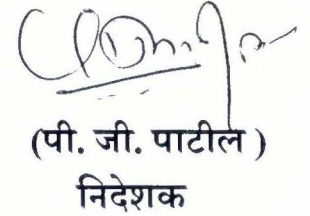 (पी. जी. पाटील )
निदेशक